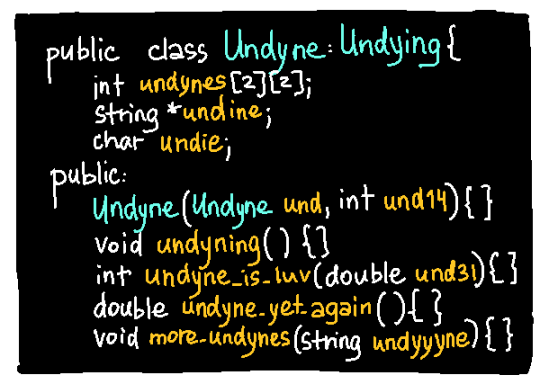 public class Undyne: Undying {
int undynes[2][2];
string *undine;
char undie;
public:
Undyne(Undyne und, int und14){}
void undyning() {}
int undyne_is_luv(double und31){}
double undyne_yet_again(){}
void more_undynes(string undyyyne){}